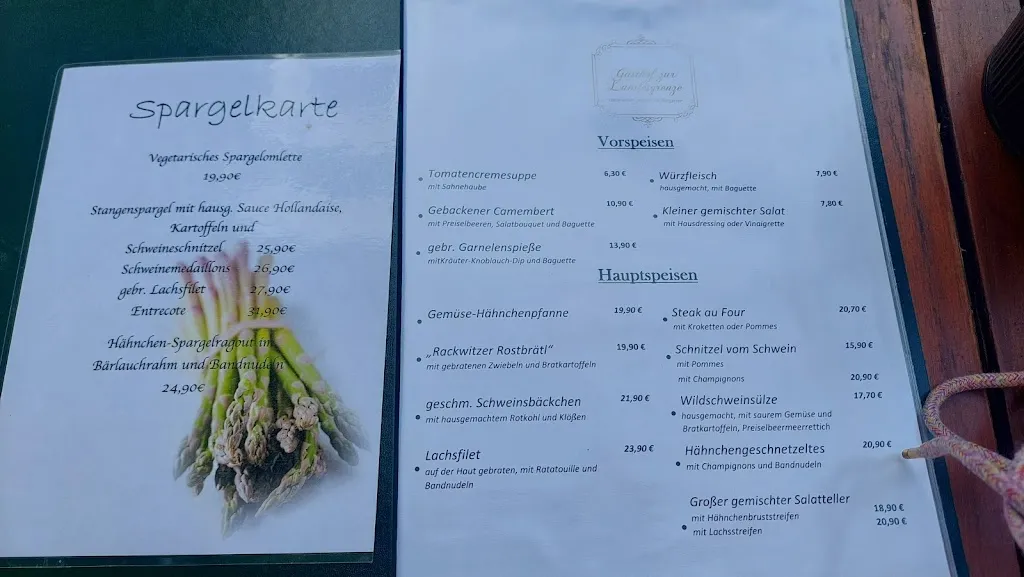 Spargelkarte
Vegetarisches Spargelomlette
19,90€
Stangenspargel mit hausg. Sauce Hollandaise,
Kartoffeln und
Schweineschnitzel 25,90€
Schweinemedaillons 26,90€
gebr. Lachsfilet 27,90€
Entrecote 31,90€
Hähnchen-Spargelragout in
Bärlauchrahm und Bandnudeln
24,90€
Gasthof zur
Landsgrenze
Vorspeisen
Tomatencremesuppe 6,30 €
mit Sahnehaube
Gebackener Camembert 10,90 €
mit Preiselbeeren, Salatbouquet und Baguette
gebr. Garnelenspieße 13,90 €
mitKräuter-Knoblauch-Dip und Baguette
Würzfleisch 7,90 €
hausgemacht, mit Baguette
Kleiner gemischter Salat 7,80 €
mit Hausdressing oder Vinaigrette
Hauptspeisen
Gemüse-Hähnchenpfanne 19,90 €
„Rackwitzer Rostbrätl“ 19,90 €
mit gebratenen Zwiebeln und Bratkartoffeln
geschm. Schweinsbäckchen 21,90 €
mit hausgemachtem Rotkohl und Klößen
Lachsfilet 23,90 €
auf der Haut gebraten, mit Ratatouille und
Bandnudeln
Steak au Four 20,70 €
mit Kroketten oder Pommes
Schnitzel vom Schwein 15,90 €
mit Pommes
mit Champignons 20,90 €
Wildschweinsülze 17,70 €
hausgemacht, mit saurem Gemüse und
Bratkartoffeln, Preiselbeermeerrettich
Hähnchengeschnetzeltes 20,90 €
mit Champignons und Bandnudeln
Großer gemischter Salatteller
mit Hähnchenbruststreifen 18,90 €
mit Lachsstreifen 20,90 €